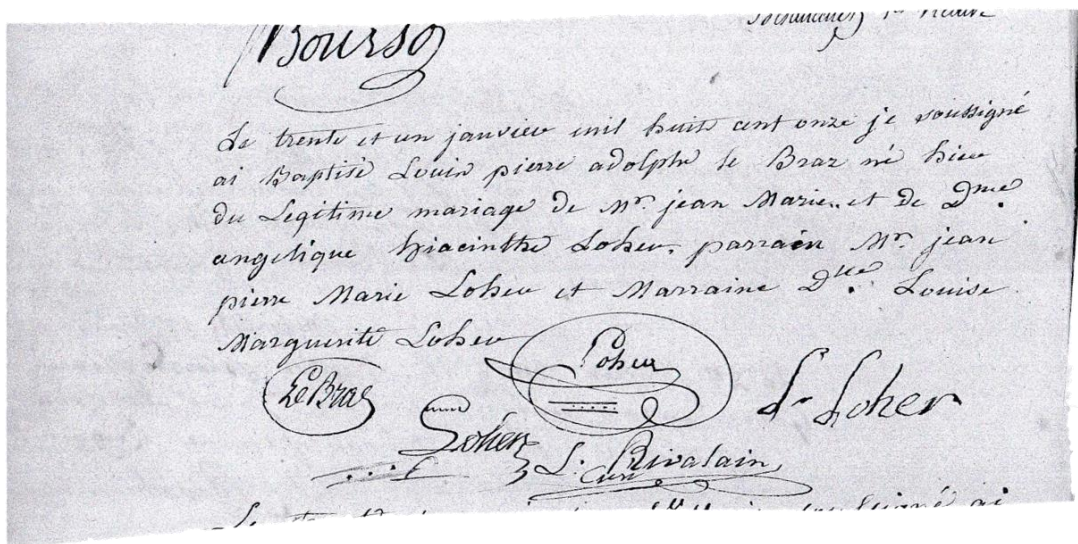 Boursg
Le trente et un janvier mil huit cent onze je soussigné
ai Baptisé Louis pierre adolphe le Braz né hier
du Legitime mariage de Mr. jean Marie.. et de Dme.
angelique hiacinthe Loher. parrain Mr. jean
pierre Marie Loher et Marraine Dlle. Louise
Marguerite Loher
Le Bras
Loher
L. Loher
Loher
L. Rivalain